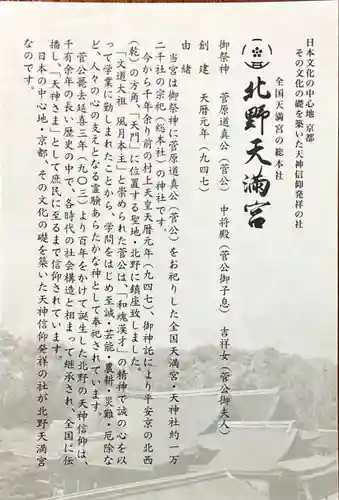 日本文化の中心地 京都
その文化の礎を築いた天神信仰発祥の社
全国天満宮の総本社
北野天満宮
御祭神 菅原道真公（菅公） 中将殿（菅公御子息） 吉祥女（菅公御夫人）
創建 天暦元年（九四七）
由緒
当宮は御祭神に菅原道真公（菅公）をお祀りした全国天満宮・天神社約一万
二千社の宗祀（総本社）の神社です。
今から千年余り前の村上天皇天暦元年（九四七）、御神託により平安京の北西
（乾）の方角、「天門」に位置する聖地・北野に鎮座致しました。
「文道大祖 風月本主」と崇められた菅公は、「和魂漢才」の精神で誠の心を以
って学業に勤しまれたことから、学問をはじめ至誠・芸能・農耕・災難・厄除な
ど、人々の心の支えとなる霊験あらたかな神として奉祀されています。
菅公薨去延喜三年（九〇三）より百年をかけて誕生した北野の天神信仰は、
千有余年の長い歴史の中で、各時代の社会構造と相まって継承され、全国に伝
播し、「天神さま」として庶民に至るまで信仰されています。
日本の中心地・京都で、その文化の礎を築いた天神信仰発祥の社が北野天満宮
なのです。